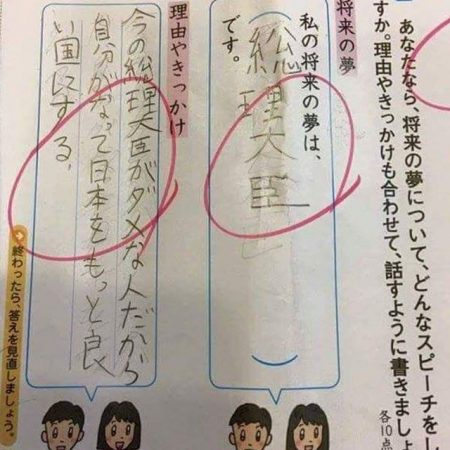 あなたなら、将来の夢について、どんなスピーチをし
すか。理由やきっかけも合わせて、話すように書きましょ
各10点
将来の夢
私の将来の夢は、
総理大臣
です。
理由やきっかけ
今の総理大臣がダメな人だから
自分がなって日本をもっと良
い国にする。
終わったら、答えを見直しましょう。